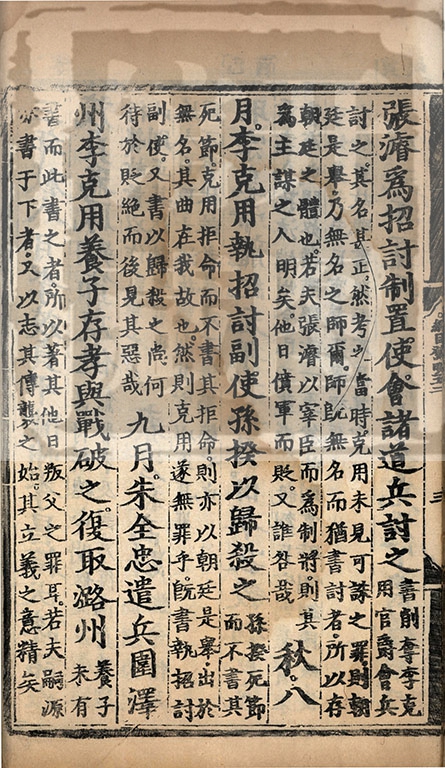 張濬爲招討制置使會諸道兵討之
書削奪李克
用官爵會兵
討之其名甚正然考之當時克用未見可誅之罪則朝
廷是舉乃無名之師爾師旣無名而猶書討者所以存
朝廷之體也若夫張濬以宰臣而爲制將則其
爲主謀之人明矣他日僨軍而貶又誰咎哉
秋八
月李克用執招討副使孫揆以歸殺之
孫揆死節
而不書其
死節克用拒命而不書其拒命則亦以朝廷是舉出於
無名其曲在我故也然則克用遂無罪乎旣書執招討
副使又書以歸殺之尚何
待於貶絶而後見其惡哉
九月朱全忠遣兵圍澤
州李克用養子存孝與戰破之復取潞州
養子
未有
書而此書之者所以著其他日叛父之罪耳若夫嗣源
亦書于下者又以志其傳襲之始其立義之意精矣